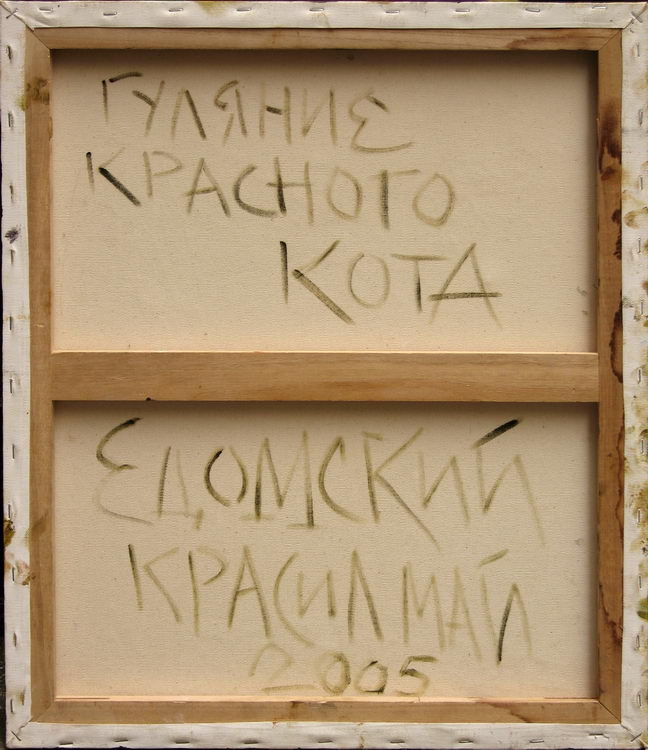 ГУЛЯНИЕ
КРАСНОГО
КОТА
ЕДОМСКИЙ
КРАСИЛ МАЙ
2005